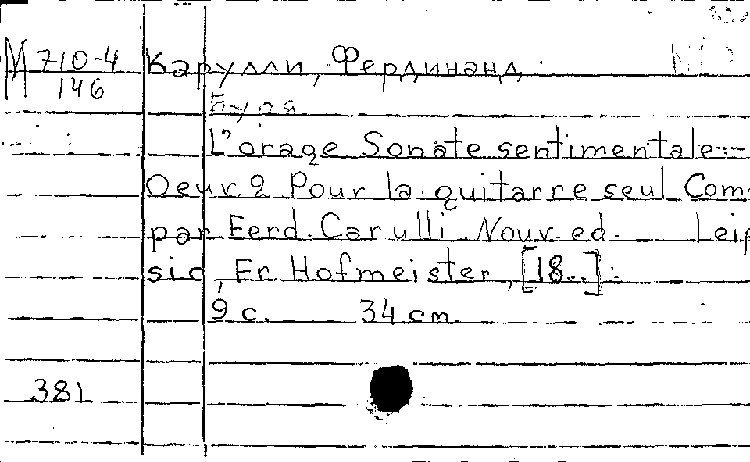 М 710-4
146
Карулли, Фердинанд.
Буря
L'orage Sonate sentimentale
Oeuv. 2 Pour la guitarre seul Com
par Ferd. Carulli Nouv. ed. Leip
sic, Fr. Hofmeister, [18..].
9 с. 34 cm.
381